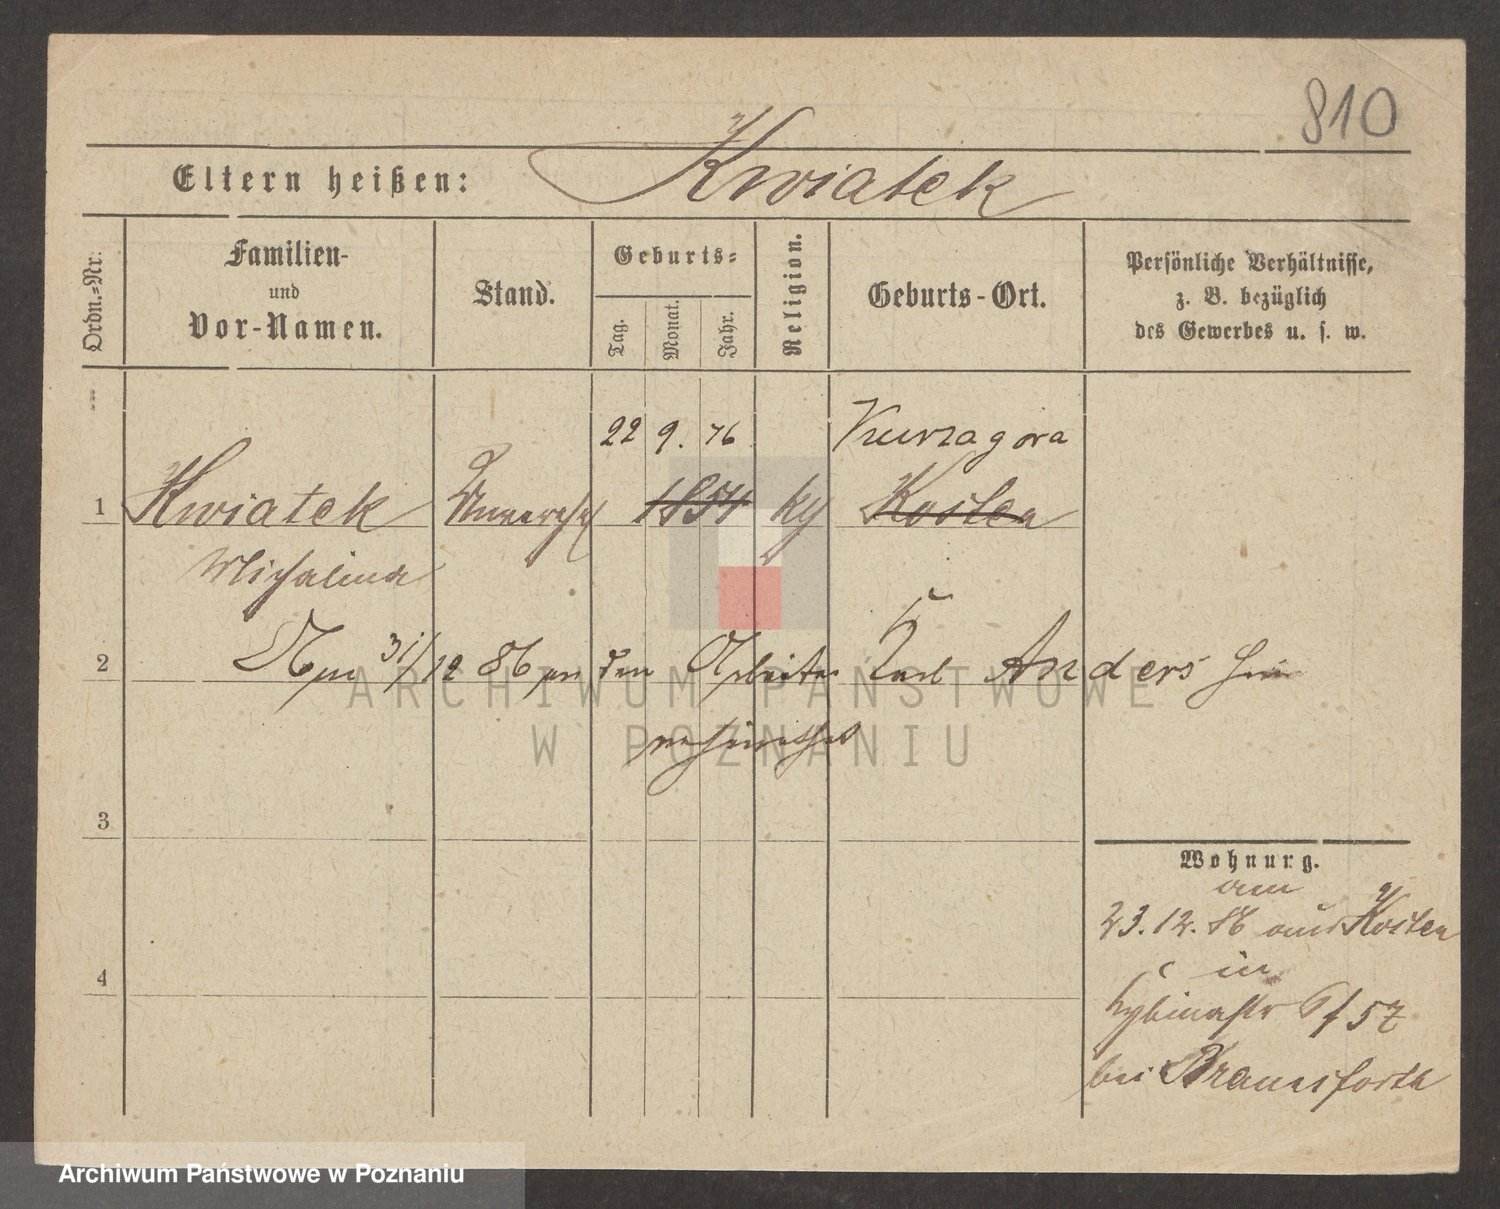 810
Eltern heißen: Kwiatek
Ordn.-Nr.
Familien-
und
Vor-Namen.
Stand.
Geburts-
Tag.
Monat.
Jahr.
Religion.
Geburts-Ort.
Persönliche Verhältnisse,
z. B. bezüglich
des Gewerbes u. s. w.
22 9. 76 Kurzagora
1 Kwiatek 1854 kg Kosten
Michalina
2 Am 31/12 86 an den Arbeiter Karl Anders hier
verheirathet
3
4
Wohnung.
am
23.12.86 aus Kosten
in
bei
ARCHIWUM PAŃSTWOWE
W POZNANIU
Archiwum Państwowe w Poznaniu